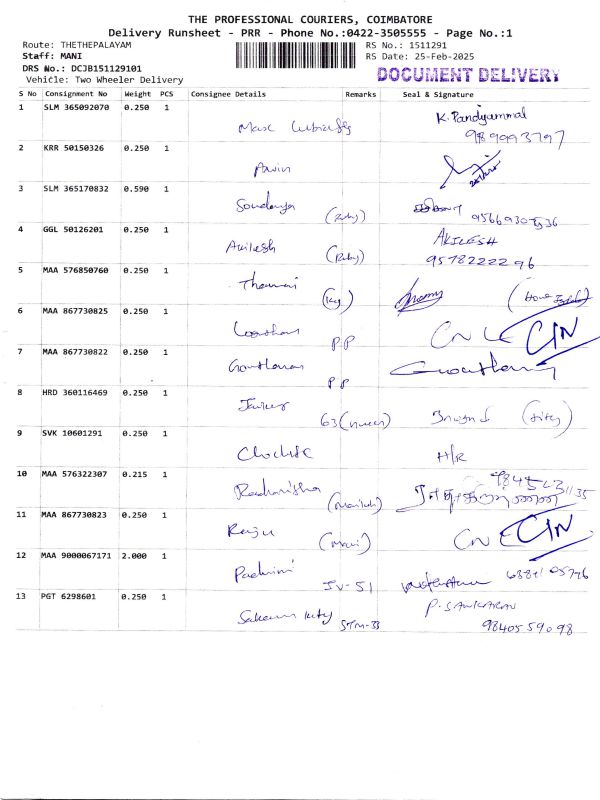 THE PROFESSIONAL COURIERS, COIMBATORE
Delivery Runsheet - PRR - Phone No.:0422-3505555 - Page No.:1
Route: THETHEPALAYAM RS No.: 1511291
Staff: MANI RS Date: 25-Feb-2025
DRS No.: DCJB151129101 DOCUMENT DELIVERY
Vehicle: Two Wheeler Delivery
S No Consignment No Weight PCS Consignee Details Remarks Seal & Signature
1 SLM 365092070 0.250 1 K. Pandiyammal
9899993797
2 KRR 50150326 0.250 1
3 SLM 365170832 0.590 1 Soundarya (Ruby)
4 GGL 50126201 0.250 1 Akilesh (Ruby) AKILESH
9578222296
5 MAA 576850760 0.250 1
6 MAA 867730825 0.250 1 PP CIN
7 MAA 867730822 0.250 1 Gowthaman PP Gowthaman
8 HRD 360116469 0.250 1 63
9 SVK 10601291 0.250 1 H/R
10 MAA 576322307 0.215 1
11 MAA 867730823 0.250 1 Raju (Mani) CIN
12 MAA 9000067171 2.000 1 Padmini JV-51
13 PGT 6298601 0.250 1 STM-33 P. SANKARAN
9840559098